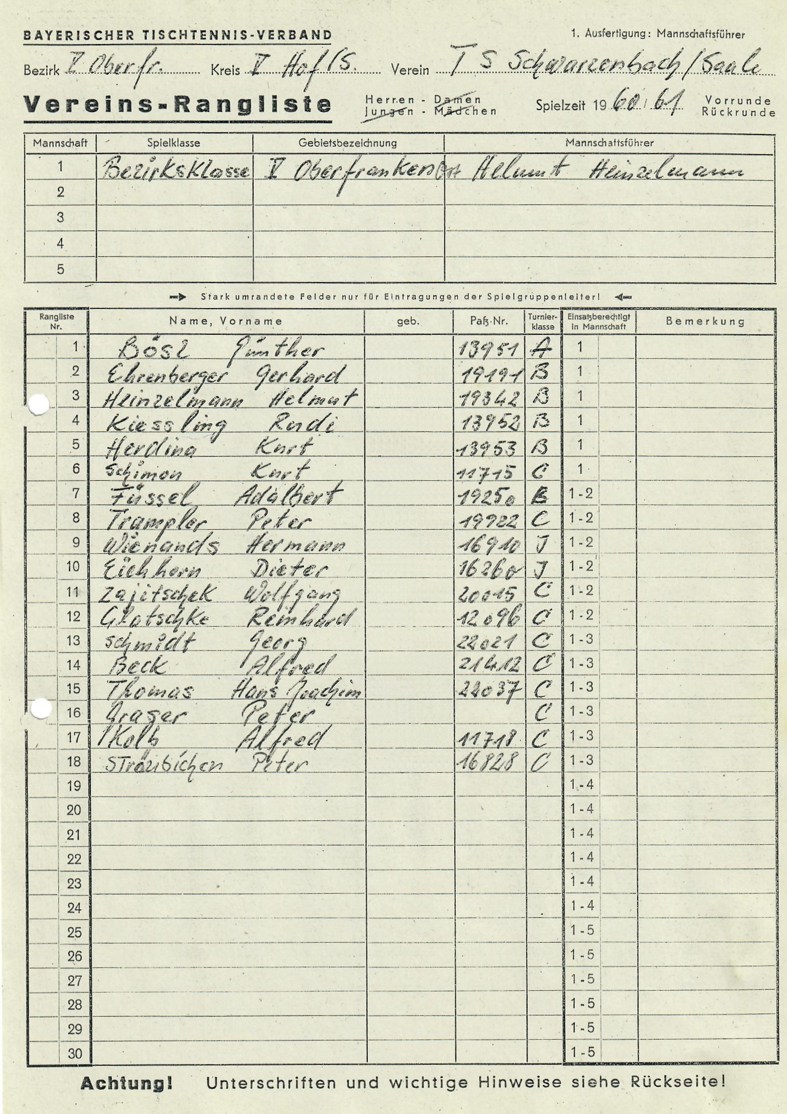 BAYERISCHER TISCHTENNIS-VERBAND 1. Ausfertigung: Mannschaftsführer
Bezirk V Oberfr. Kreis V Hof/S. Verein TS Schwarzenbach/Saale
Vereins-Rangliste Herren - Damen Spielzeit 1960/61 Vorrunde
Jungen - Mädchen Rückrunde
Mannschaft Spielklasse Gebietsbezeichnung Mannschaftsführer
1 Bezirksklasse V Oberfranken Ost Helmut Heinzelmann
2
3
4
5
Stark umrandete Felder nur für Eintragungen der Spielgruppenleiter!
Rangliste Nr. Name, Vorname geb. Paß-Nr. Turnier-klasse Einsatzberechtigt in Mannschaft Bemerkung
1 Bösl Günther 13951 A 1
2 Ehrenberger Gerhard 19191 B 1
3 Heinzelmann Helmut 19342 B 1
4 Kiessling Rudi 13952 B 1
5 Herdina Kurt 13953 B 1
6 Schimon Kurt 11715 C 1
7 Füssel Adalbert 19250 B 1-2
8 Trampler Peter 19922 C 1-2
9 Wienands Hermann 16910 J 1-2
10 Eichhorn Dieter 16260 J 1-2
11 Zajitschek Wolfgang 20015 C 1-2
12 Glatschke Reinhard 12096 C 1-2
13 Schmidt Georg 22021 C 1-3
14 Beck Alfred 21412 C 1-3
15 Thomas Hans Joachim 22037 C 1-3
16 Peter C 1-3
17 Kolb Alfred 11718 C 1-3
18 Peter 16828 C 1-3
19 1-4
20 1-4
21 1-4
22 1-4
23 1-4
24 1-4
25 1-5
26 1-5
27 1-5
28 1-5
29 1-5
30 1-5
Achtung! Unterschriften und wichtige Hinweise siehe Rückseite!